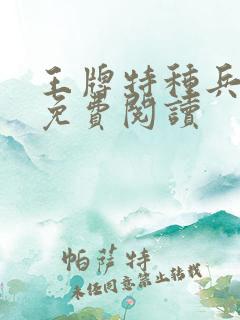 王牌特種兵
免費閱讀
帕薩特
未經同意禁止轉載